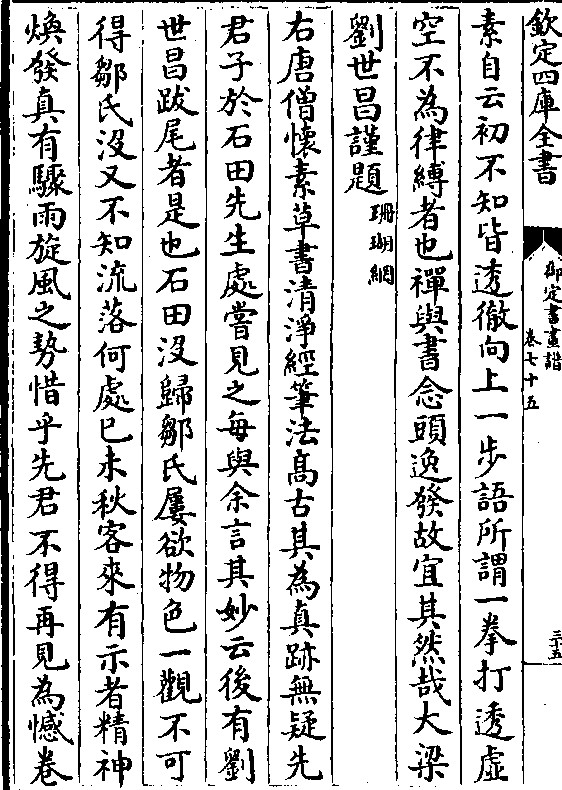 欽定四庫全書
御定書畫譜
卷七十五
三十五
素自云初不知皆透徹向上一步語所謂一拳打透虛
空不為律縛者也禪與書念頭逸發故宜其然哉大梁
劉世昌謹題珊瑚網
右唐僧懷素草書清淨經筆法髙古其為真跡無疑先
君子於石田先生處嘗見之每與余言其妙云後有劉
世昌跋尾者是也石田沒歸鄒氏屢欲物色一觀不可
得鄒氏沒又不知流落何處已未秋客來有示者精神
煥發真有驟雨旋風之勢惜乎先君不得再見為憾卷